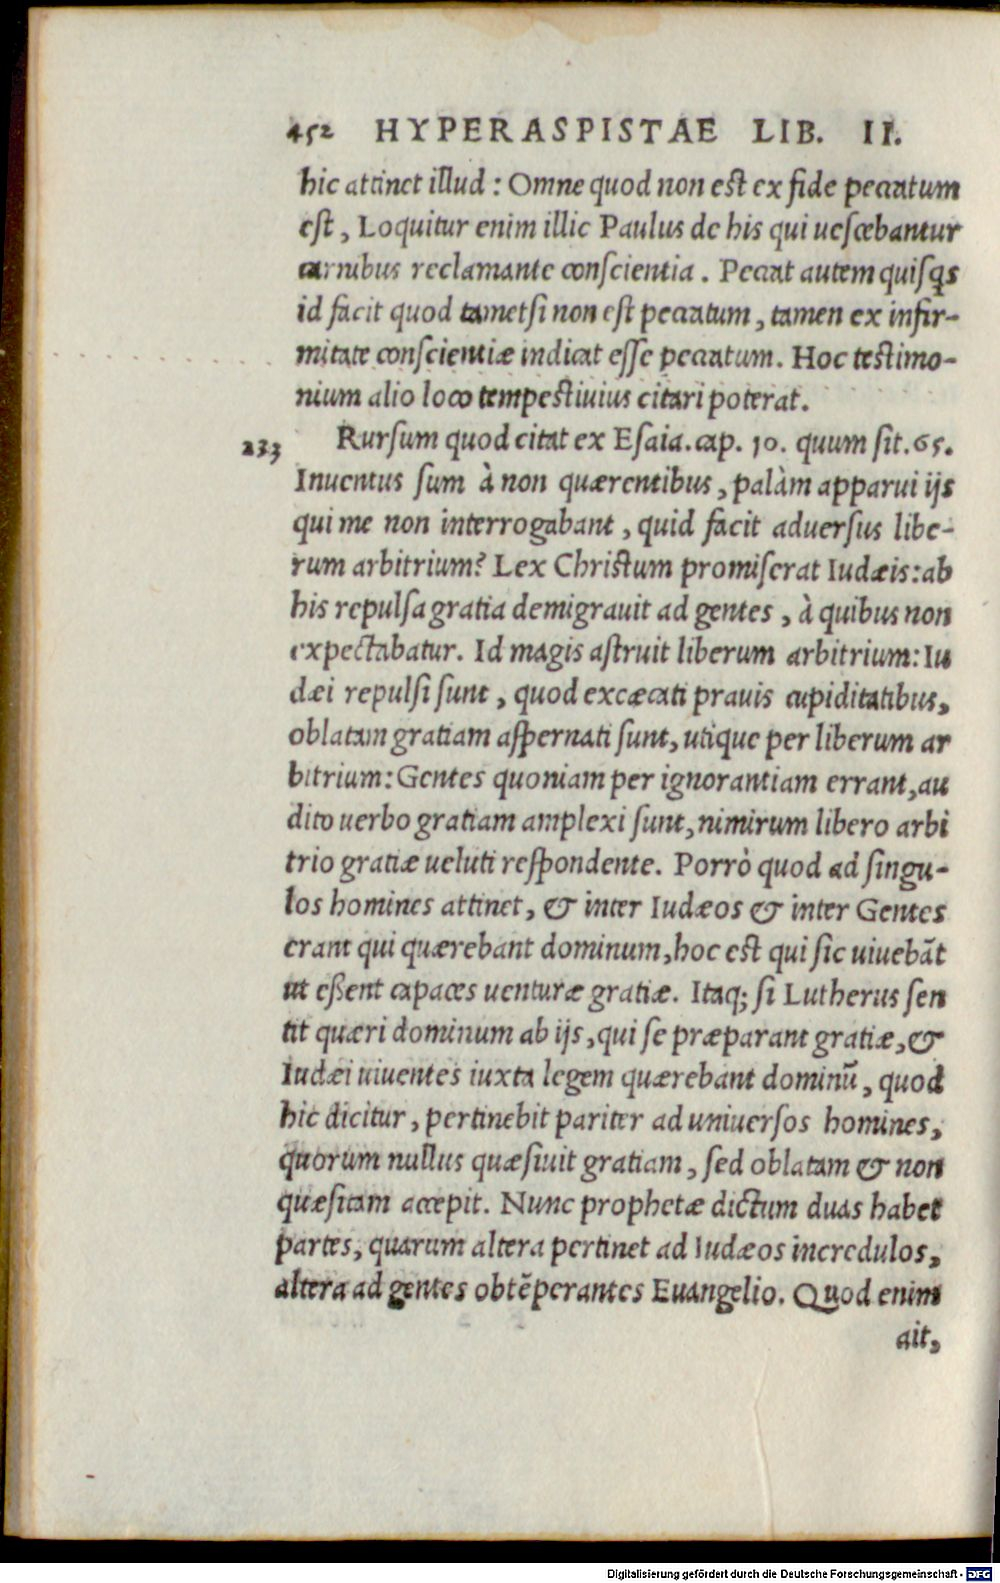 452 HYPERASPISTAE LIB. II.
hic attinet illud : Omne quod non est ex fide peccatum
est , Loquitur enim illic Paulus de his qui uescebantur
carnibus reclamante conscientia . Peccat autem quisqs
id facit quod tametsi non est peccatum , tamen ex infir-
mitate conscientiæ indicat esse peccatum . Hoc testimo-
nium alio loco tempestiuius citari poterat.
233 Rursum quod citat ex Esaia. cap. 10. quum sit .65.
Inuentus sum à non quærentibus , palàm apparui ijs
qui me non interrogabant , quid facit aduersus libe-
rum arbitrium? Lex Christum promiserat Iudæis: ab
his repulsa gratia demigrauit ad gentes , à quibus non
expectabatur. Id magis astruit liberum arbitrium: Iu
dæi repulsi sunt , quod excæcati prauis cupiditatibus,
oblatam gratiam aspernati sunt, utique per liberum ar
bitrium: Gentes quoniam per ignorantiam errant, au
dito uerbo gratiam amplexi sunt, nimirum libero arbi
trio gratiæ ueluti respondente. Porrò quod ad singu-
los homines attinet, & inter Iudæos & inter Gentes
erant qui quærebant dominum, hoc est qui sic uiuebãt
ut eßent capaces uenturæ gratiæ. Itaq; si Lutherus sen
tit quæri dominum ab ijs, qui se præparant gratiæ, &
Iudæi uiuentes iuxta legem quærebant dominũ, quod
hic dicitur , pertinebit pariter ad uniuersos homines,
quorum nullus quæsiuit gratiam , sed oblatam & non
quæsitam accepit. Nunc prophetæ dictum duas habet
partes, quarum altera pertinet ad Iudæos incredulos,
altera ad gentes obtẽperantes Euangelio. Quod enim
ait,
Digitalisierung gefördert durch die Deutsche Forschungsgemeinschaft - DFG